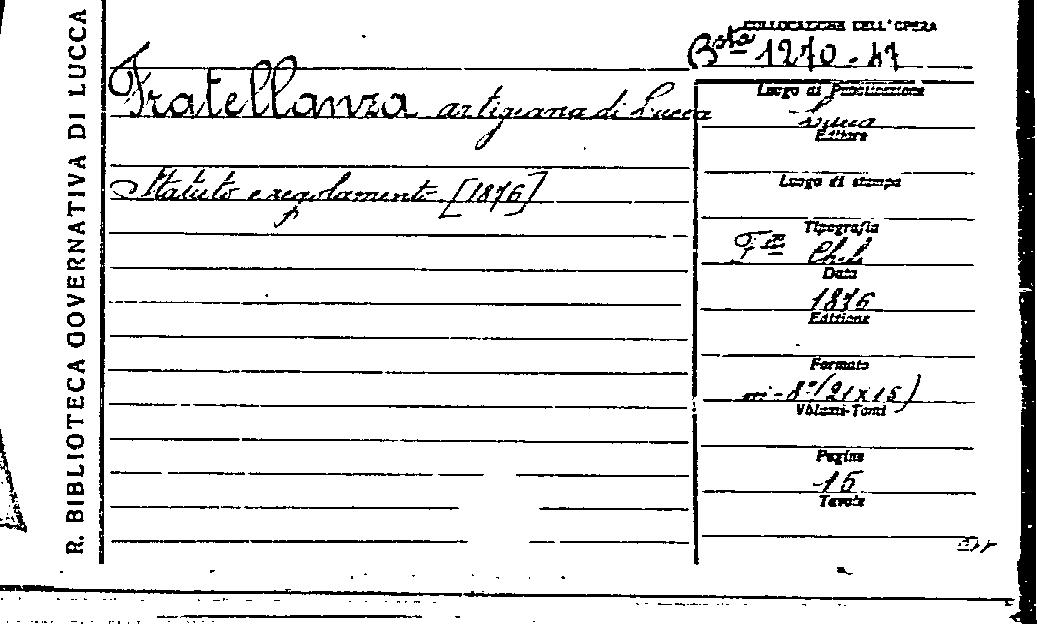 R. BIBLIOTECA GOVERNATIVA DI LUCCA
COLLOCAZIONE DELL'OPERA
Bsta 1270.47
Fratellanza artigiana di Lucca
Statuto e regolamento. [1876]
Luogo di Pubblicazione
Lucca
Editore
Luogo di stampa
Tipografia
Data
1876
Edizione
Formato
in-8° (21x15)
Volumi-Tomi
Pagine
16
Tavole